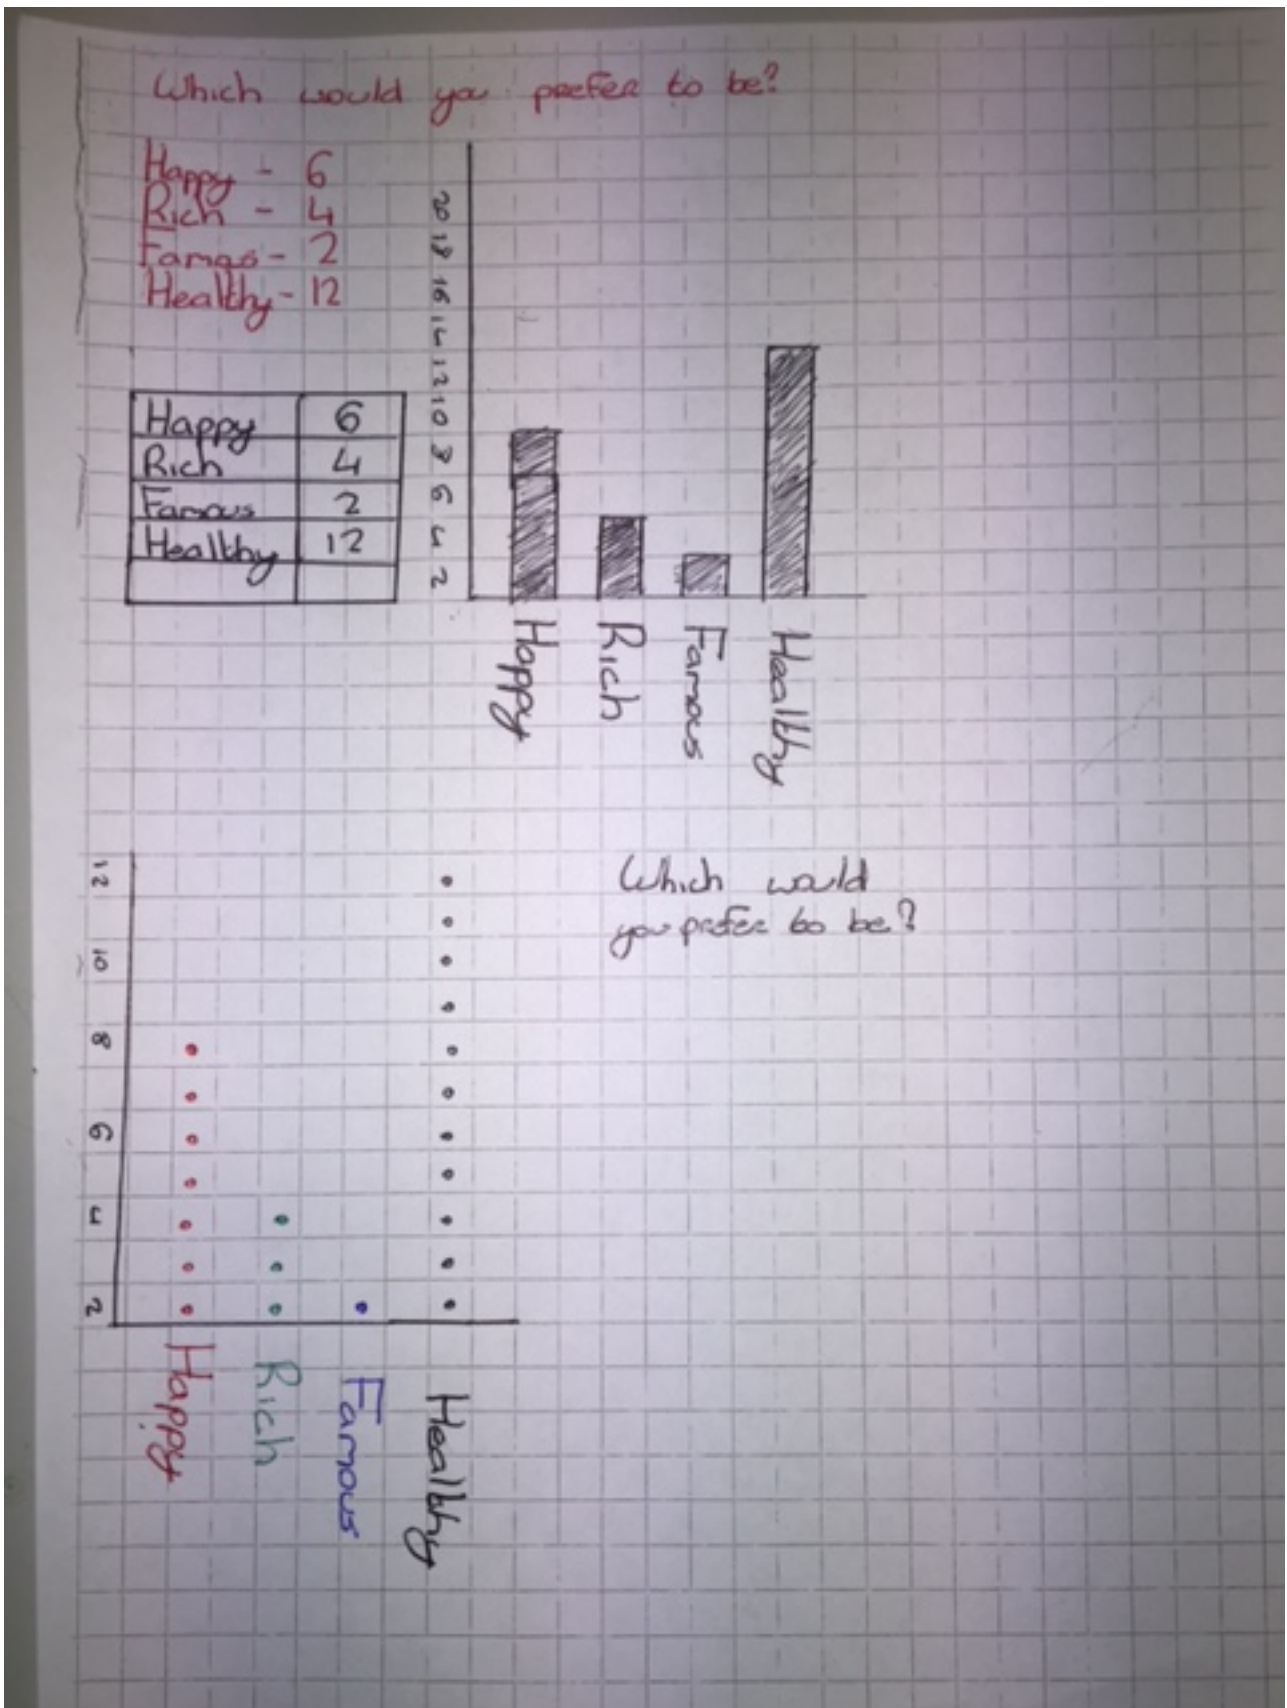 Which would you prefer to be?
Happy - 6
Rich - 4
Famos - 2
Healthy - 12
Happy 6
Rich 4
Famous 2
Healthy 12
20
18
16
14
12
10
8
6
4
2
Happy
Rich
Famous
Healthy
Which would
you prefer to be?
12
10
8
6
4
2
Happy
Rich
Famous
Healthy